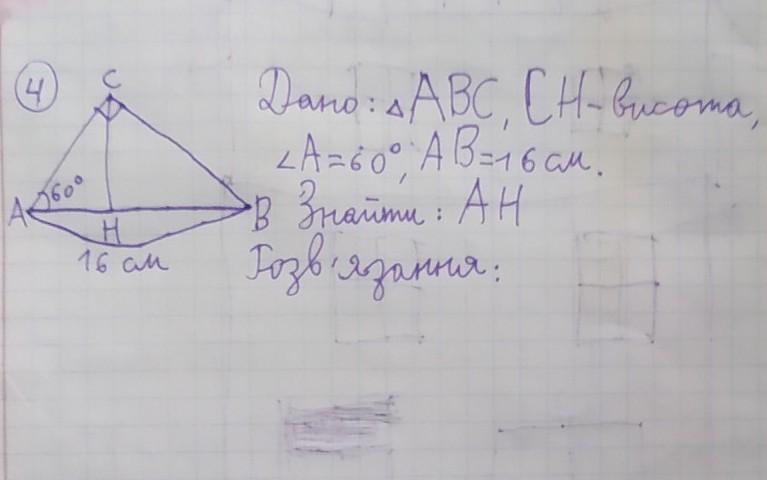 4
C
Дано: △ABC, CH-висота,
∠A=60°, AB=16 см.
60°
A
H
B
Знайти: AH
16 см
Розв'язання: